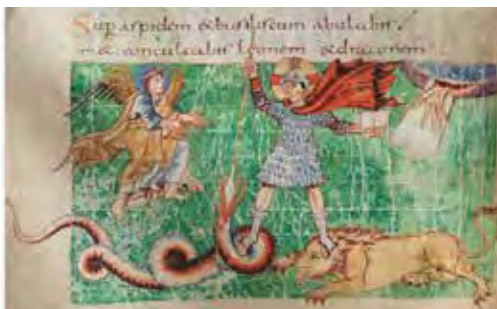 Sup aspidem & basiliscum abulabis.
& conculcabis leonem & draconem